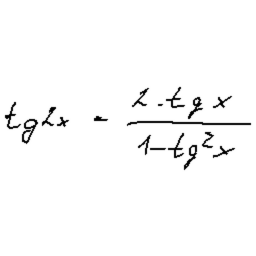 tg2x = \frac{2 \cdot tg x}{1 - tg^2 x}